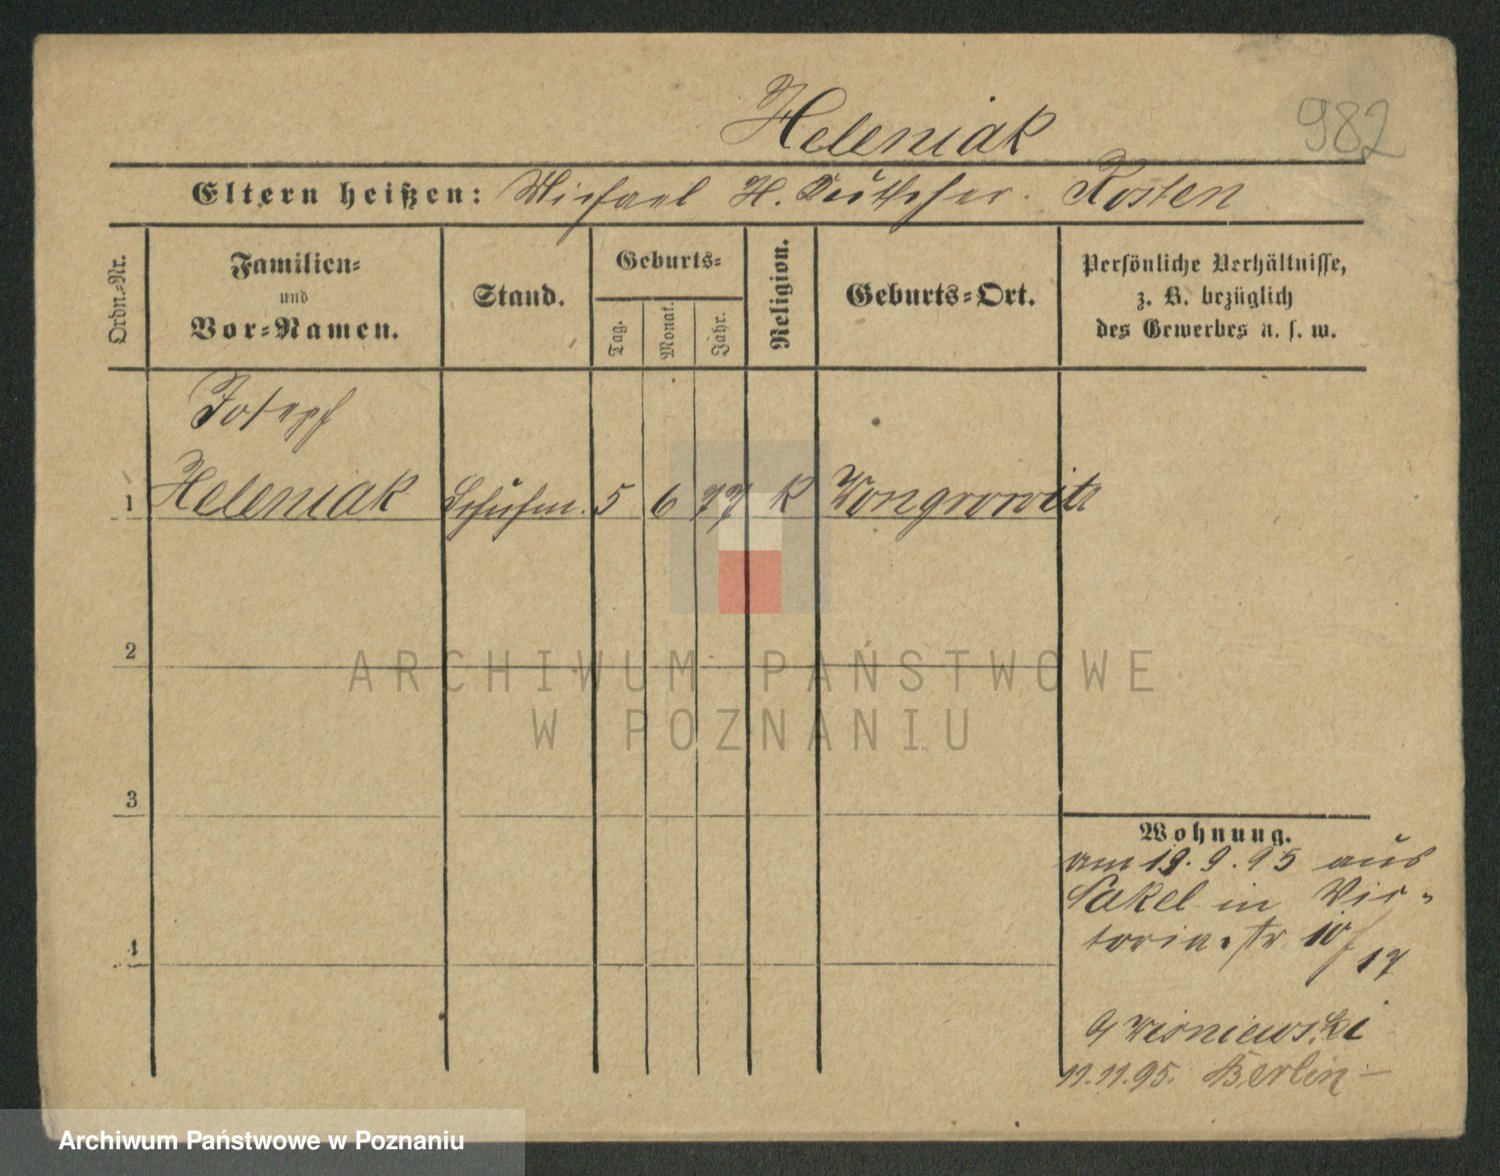 Heleniak
982
Eltern heißen: Michael H. Rosten
Ordn.-Nr.
Familien-
und
Vor-Namen.
Stand.
Geburts-
Tag.
Monat.
Jahr.
Religion.
Geburts-Ort.
Persönliche Verhältnisse,
z. B. bezüglich
des Gewerbes u. s. w.
Joseph
1 Heleniak Schuhm. 5 6 77 K Wongrowitz
2
3
4
Wohnung.
am 19. 9. 95 aus
Nakel in Vic-
toria.str 10/
17
Wisniewski
11.11.95. Berlin
ARCHIWUM PAŃSTWOWE
W POZNANIU
Archiwum Państwowe w Poznaniu